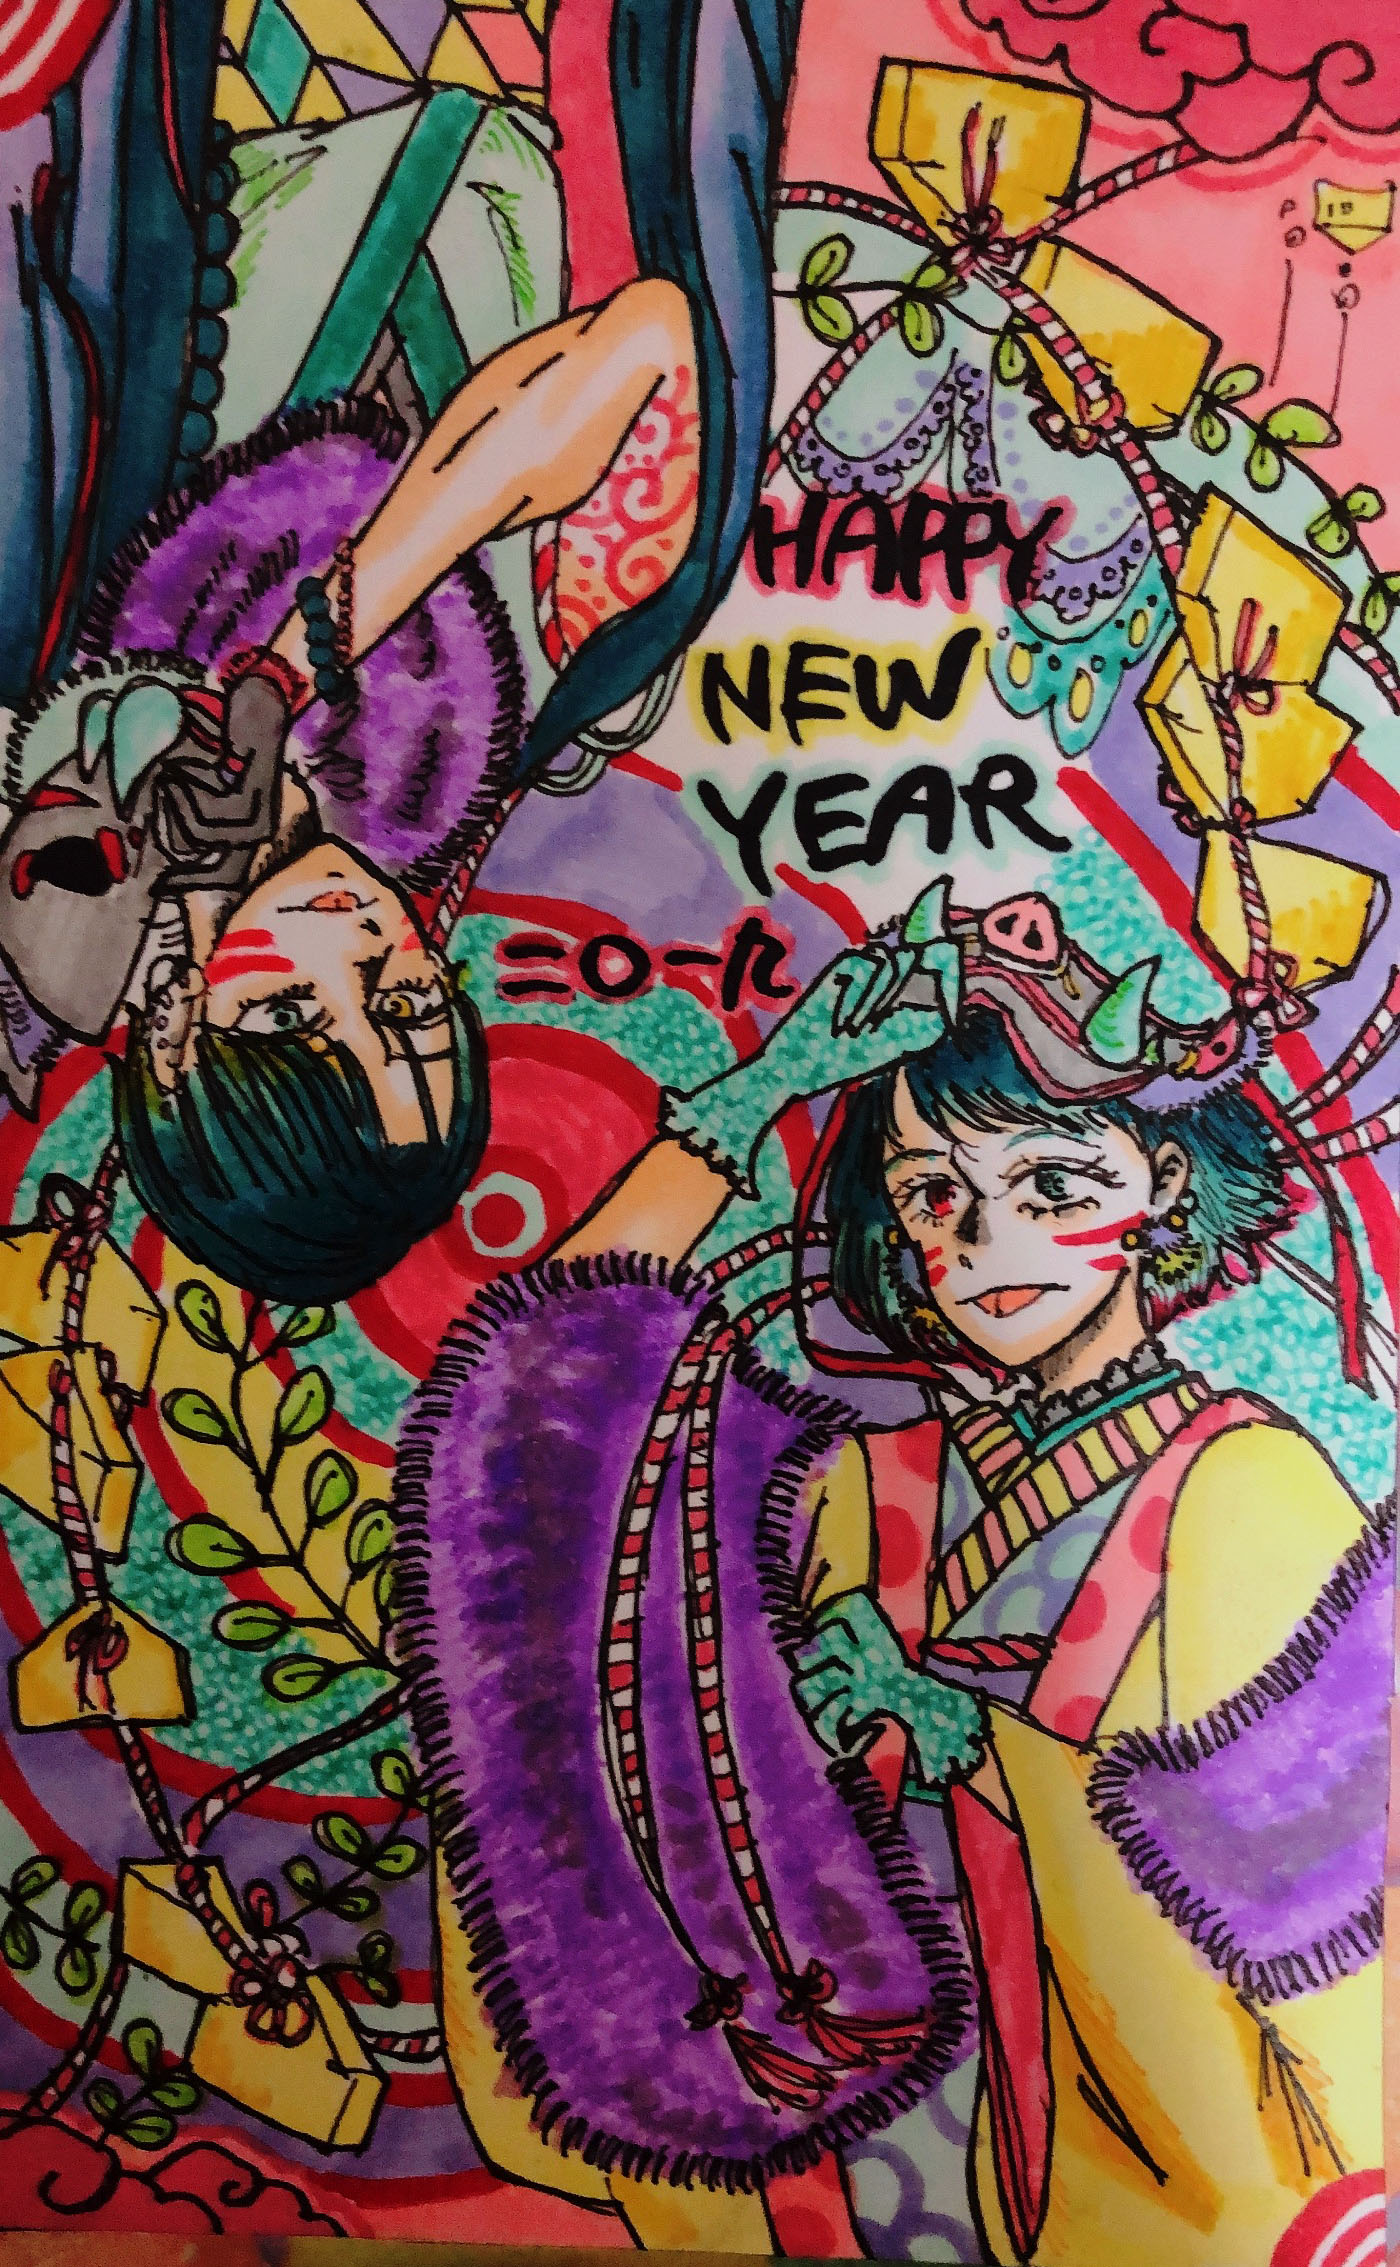 HAPPY
NEW
YEAR
二〇一九